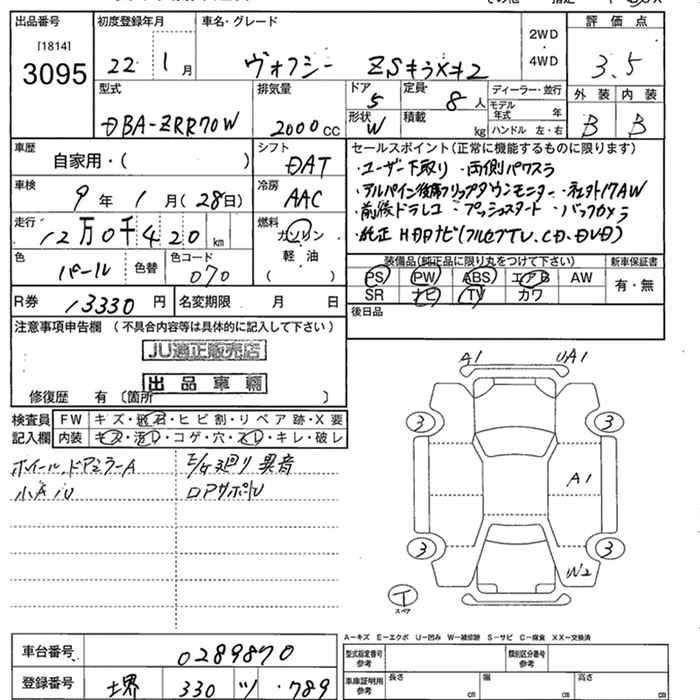 出品番号
[1814]
3095
初度登録年月
22 1 月
車名・グレード
ヴォクシー ZSキラメキ2
2WD
・
4WD
評価点
3.5
型式
DBA-ZRR70W
排気量
2000 CC
ドア
5
形状
W
定員
8 人
積載
kg
ディーラー・並行
モデル年式 年
ハンドル 左・右
外装 内装
B B
車歴
自家用・( )
シフト
DAT
車検
9年 1月(28日)
冷房
AAC
走行
12万0千420km
燃料
ガソリン
軽油
( )
色
パール
色替
色コード
070
R券
13330 円
名変期限 月 日
セールスポイント(正常に機能するものに限ります)
・ユーザー下取り ・両側パワスラ
・アルパイン後席フリップダウンモニター ・社外17AW
・前後ドラレコ ・プッシュスタート ・バックカメラ
・純正HDDナビ(フルセグTV、CD、DVD)
装備品(純正品に限り丸をつけて下さい)
PS PW ABS エアB AW
SR ナビ TV カワ
新車保証書
有・無
後日品
注意事項申告欄 (不具合内容等は具体的に記入して下さい)
JU適正販売店
出品車輌
修復歴 有 〔箇所 〕
検査員記入欄
FW キズ・飛石・ヒビ割・リペア跡・X要
内装 キズ・汚レ・コゲ・穴・スレ・キレ・破レ
ホイール、ドアミラーA
小A、U
E/G廻り異音
ロアサポートU
A1 UA1
3 3
A1
3 3
W2
T
スペア
A-キズ E-エクボ U-凹み W-補修跡 S-サビ C-腐食 XX-交換済
車台番号
0289870
登録番号
堺 330 ツ ・789
型式指定番号
参考
類別区分番号
参考
車庫証明用
参考
長さ cm
幅 cm
高さ cm